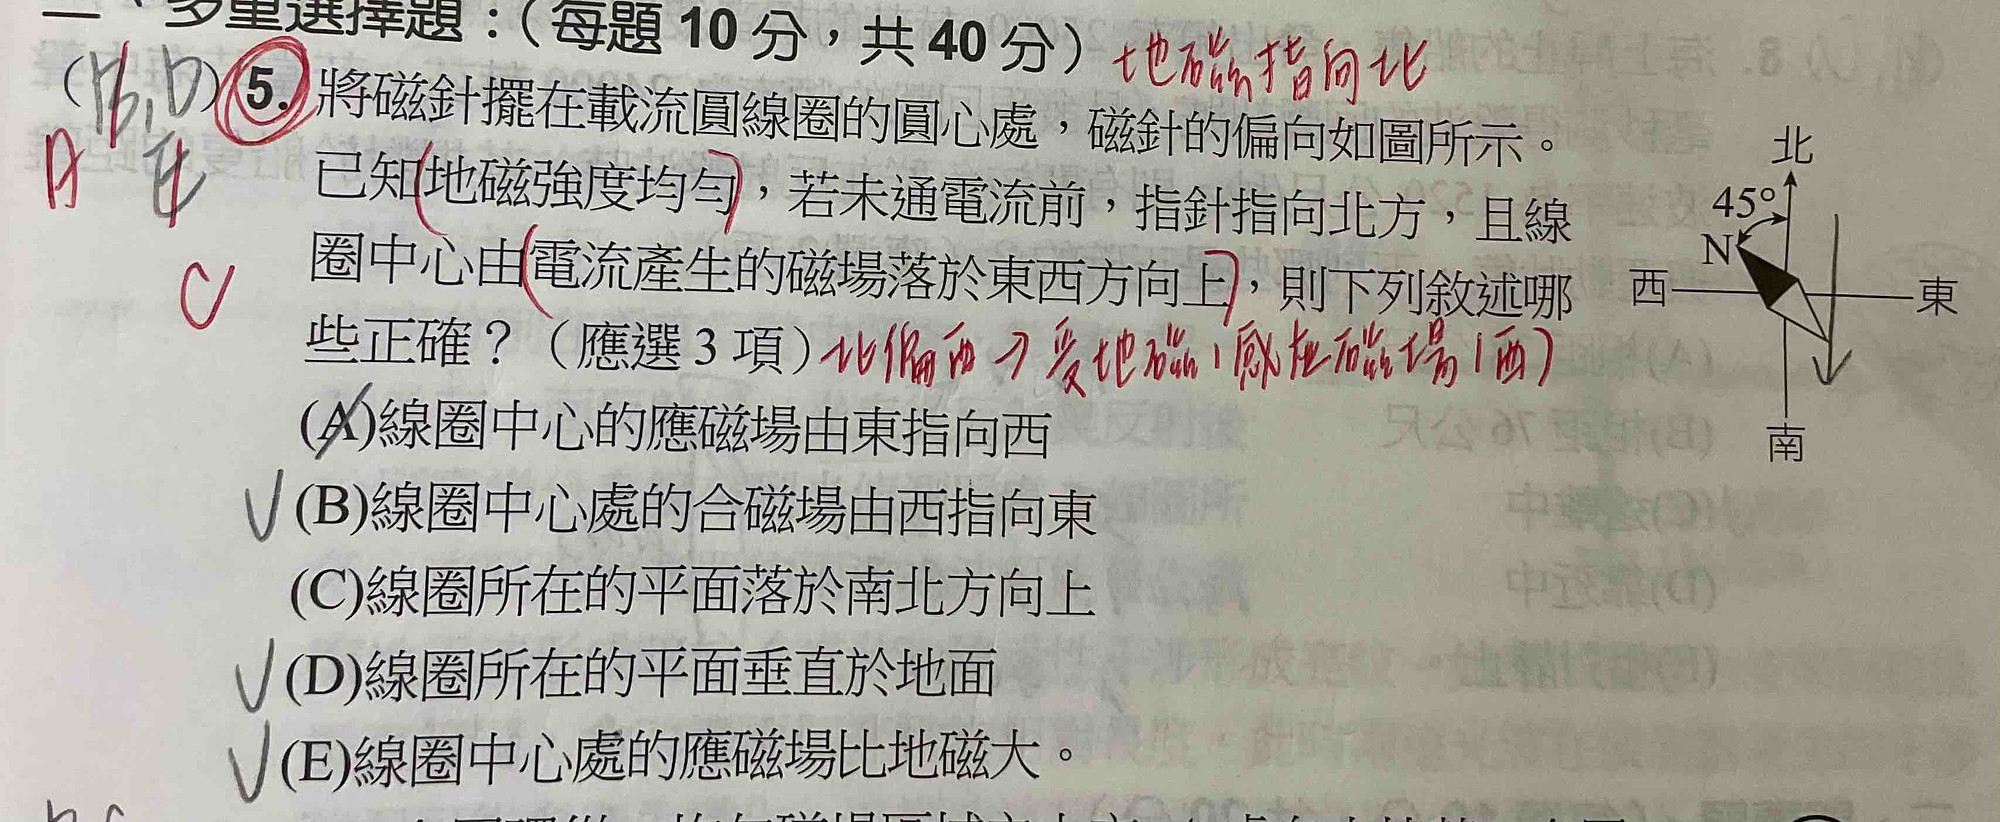 二、多重選擇題：（每題 10 分，共 40 分）地磁指向北
(B,D) 5. 將磁針擺在載流圓線圈的圓心處，磁針的偏向如圖所示。
A E
已知地磁強度均勻，若未通電流前，指針指向北方，且線
C
圈中心由電流產生的磁場落於東西方向上，則下列敘述哪
些正確？（應選 3 項）北偏西→受地磁,感在磁場(西)
(A)線圈中心的應磁場由東指向西
(B)線圈中心處的合磁場由西指向東
(C)線圈所在的平面落於南北方向上
(D)線圈所在的平面垂直於地面
(E)線圈中心處的應磁場比地磁大。
北
45°
N
西
東
南